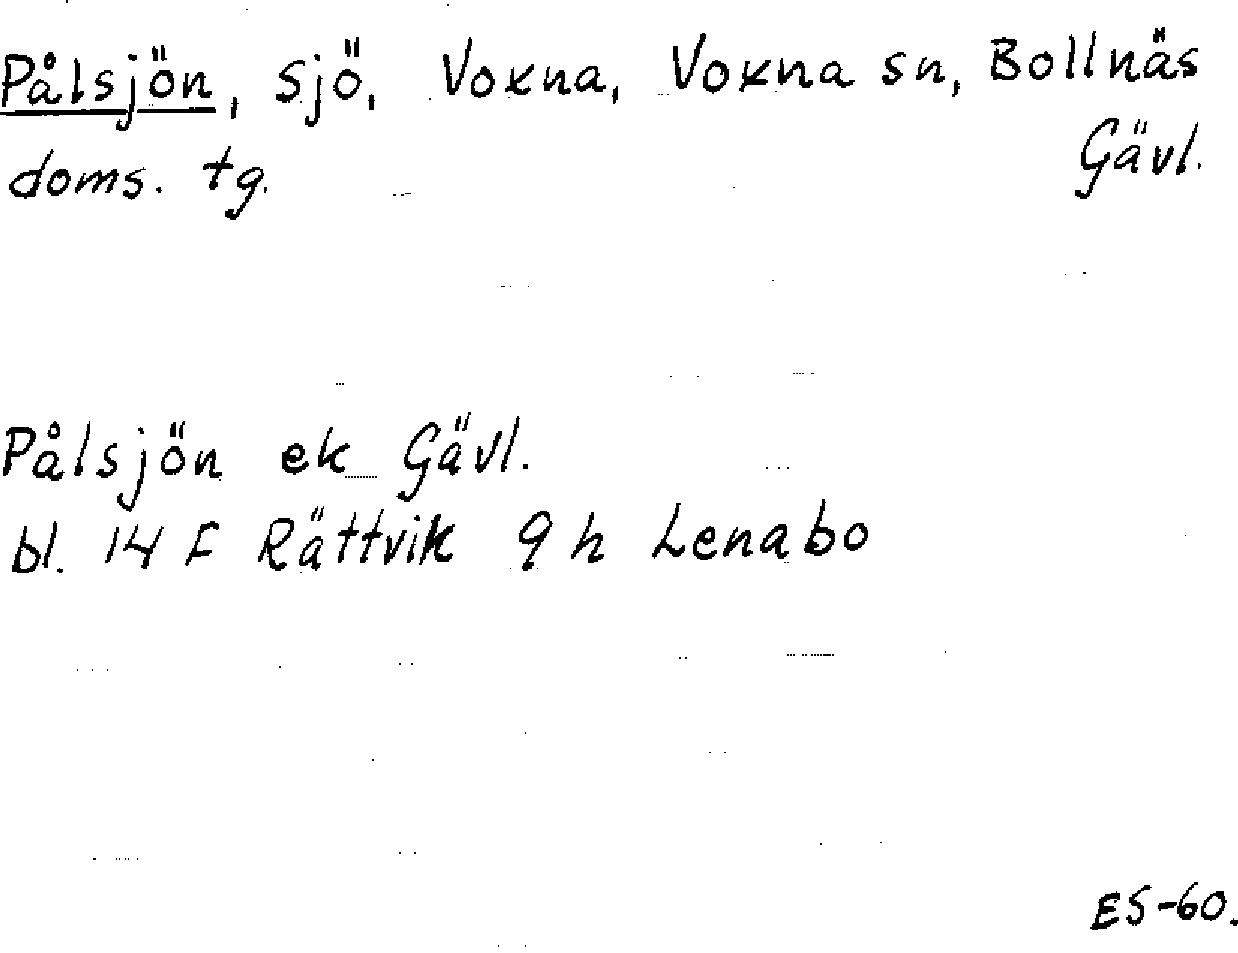 Pålsjön, sjö, Voxna, Voxna sn, Bollnäs
doms. tg. Gävl.
Pålsjön ek Gävl.
bl. 14 F Rättvik 9 h Lenabo
ES-60.